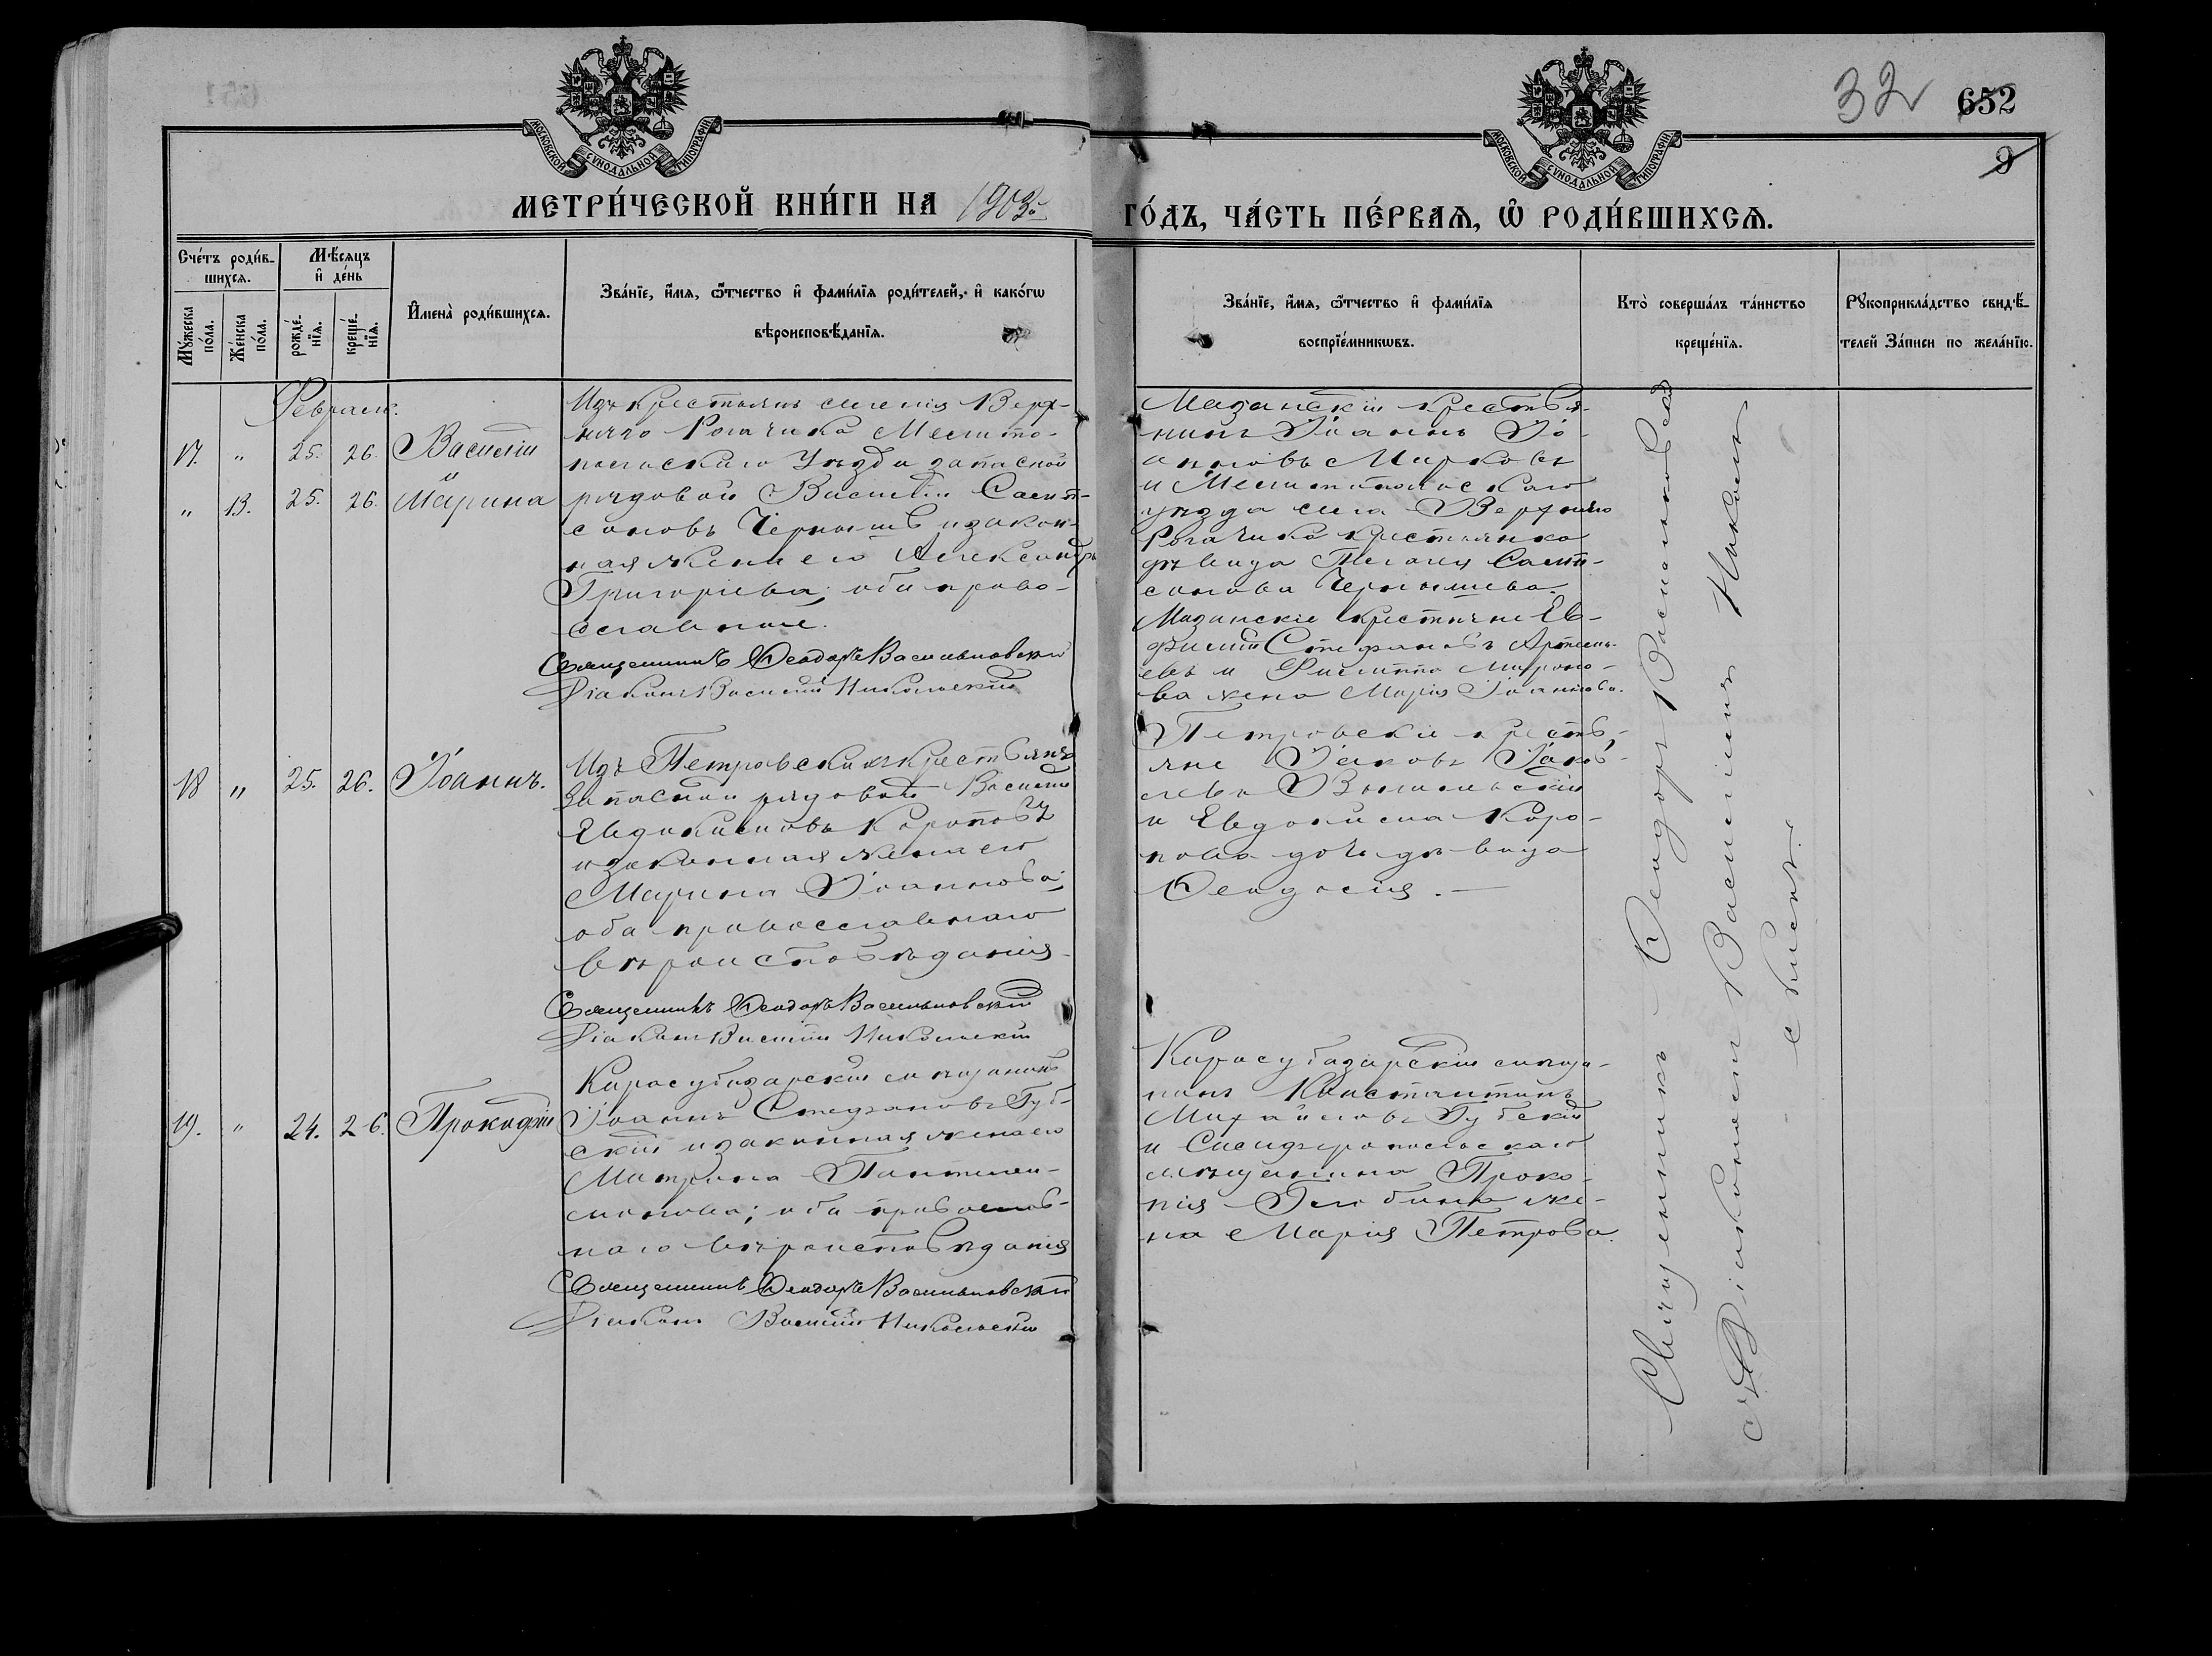 32
652
9
МОСКОВСКОЙ СѴНОДАЛЬНОЙ ТИПОГРАФИИ
МОСКОВСКОЙ СѴНОДАЛЬНОЙ ТИПОГРАФИИ
МЕТРИ́ЧЕСКОЙ КНИ́ГИ НА 1903й
ГО́ДЪ, ЧА́СТЬ ПЕ́РВАѦ, Ѽ РОДИ́ВШИХСѦ.
Сче́тъ роди́в-
шихсѧ.
Мѣ́сѧцъ
и҆ де́нь
Мꙋ́жеска
по́ла.
Же́нска
по́ла.
рожде́-
нїѧ.
креще́-
нїѧ.
И҆мена̀ роди́вшихсѧ.
Зва́нїе, и҆́мѧ, ѻ҆́тчество и҆ фами́лїѧ роди́телей, и҆ како́гѡ
вѣроисповѣ́данїѧ.
Зва́нїе, и҆́мѧ, ѻ҆́тчество и҆ фами́лїѧ
воспрїе́мникѡвъ.
Кто̀ соверша́лъ та́инство
креще́нїѧ.
Рꙋкоприкла́дство свидѣ́-
телей За́писи по жела́нїю.
Февраль.
17. " 25. 26. Василій
" 13. 25. 26. Марина
Изъ крестьянъ селенія Верх-
няго Рогачика Мелито-
польскаго Уѣзда запасной
рядовой Василій Самп-
соновъ Чернышевъ и закон-
ная жена его Александра
Григоріева; оба право-
славные.
Священникъ Ѳеодоръ Васильковскій
Діаконъ Василій Никольскій
Мазанскій крестья-
нинъ Іоаннъ Іо-
анновъ Марковъ
и Мелитопольскаго
уѣзда села Верхняго
Рогачика крестьянка
дѣвица Пелагія Самп-
сонова Чернышева.
Мазанскіе крестьяне Ев-
фимій Стефановъ Артемь-
евъ и Филиппа Мироно-
ва жена Марія Іоаннова.
18 " 25. 26. Іоаннъ.
Изъ Петровскихъ крестьянъ
запасной рядовой Василій
Евдокимовъ Коропов
и законная жена его
Марина Іоаннова;
оба православнаго
вѣроисповѣданія
Священникъ Ѳеодоръ Васильковскій
Діаконъ Василій Никольскій
Петровскіе кресть-
яне Іаковъ Іаков-
левъ
и Евдокима Коро-
пова дочь дѣвица
Ѳеодосія.
19. " 24. 26. Прокофій
Карасубазарскій мѣщанинъ
Іоаннъ Стефановъ Губ-
скій и законная жена его
Матрона Пантелеи-
монова; оба православ-
наго вѣроисповѣданія
Священникъ Ѳеодоръ Васильковскій
Діаконъ Василій Никольскій
Карасубазарскій мѣща-
нинъ Константинъ
Михайловъ Губскій
и Симферопольскаго
мѣщанина Проко-
пія же-
на Марія Петрова.
Священникъ Ѳеодоръ Васильковскій
съ Діакономъ Василіемъ Николь-
скимъ.